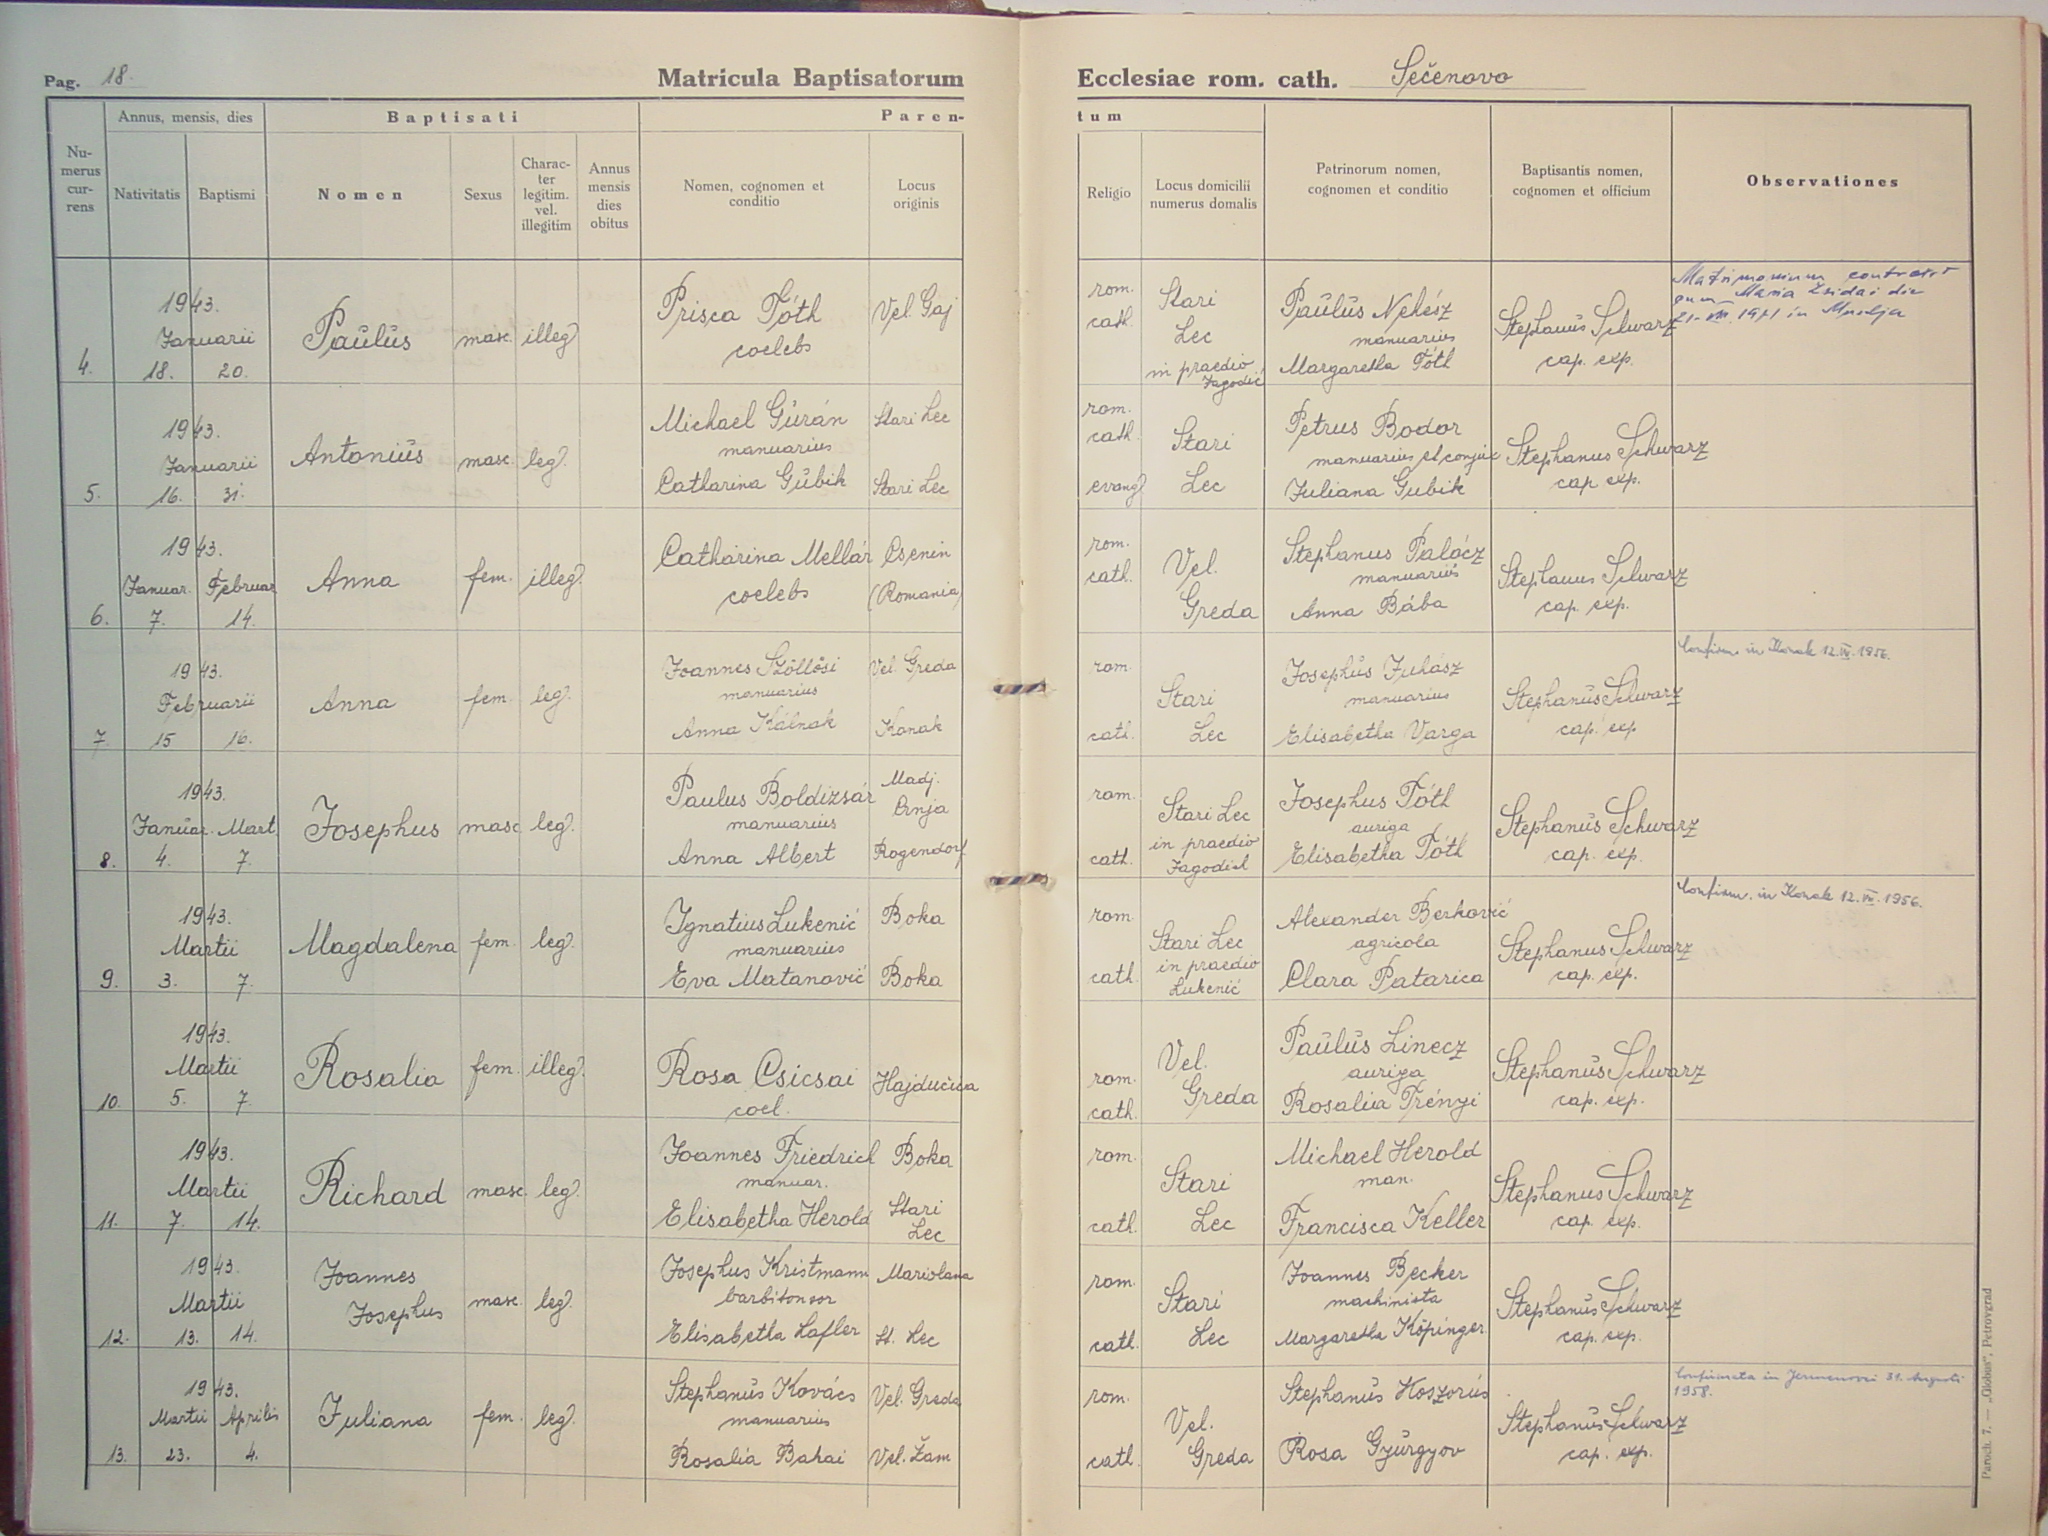 Pag. 18.
Matricula Baptisatorum
Ecclesiae rom. cath. Sečenovo
Numerus currens
Annus, mensis, dies
Nativitatis
Baptismi
Baptisati
Nomen
Sexus
Charac-
ter
legitim.
vel.
illegitim
Annus
mensis
dies
obitus
Paren-
tum
Nomen, cognomen et
conditio
Locus
originis
Religio
Locus domicilii
numerus domalis
Patrinorum nomen,
cognomen et conditio
Baptisantis nomen,
cognomen et officium
Observationes
4. 1943. Januarii 18. 20.
Paulus masc. illeg.
Prisca Tóth
coelebs
Vel. Gaj
rom.
cath.
Stari
Lec
in praedio
Jagodić
Paulus Nehész
manuarius
Margaretha Tóth
Stephanus Schwarz
cap. exp.
Matrimonium
Maria
in Muzlja
5. 1943. Januarii 16. 31.
Antonius masc. leg.
Michael Gurán
manuarius
Catharina Gubik
Stari Lec
Stari Lec
rom.
cath.
evang.
Stari
Lec
Petrus Bodor
manuarius et conjux
Juliana Gubik
Stephanus Schwarz
cap. exp.
6. 1943. Januar. 7. Februar 14.
Anna fem. illeg.
Catharina Mellár
coelebs
Csenin
(Romania)
rom.
cath.
Vel.
Greda
Stephanus Palócz
manuarius
Anna Bába
Stephanus Schwarz
cap. exp.
7. 1943. Februarii 15 16.
Anna fem. leg.
Joannes Szöllősi
manuarius
Anna Kálnak
Vel. Greda
Konak
rom.
cath.
Stari
Lec
Josephus Juhász
manuarius
Elisabetha Varga
Stephanus Schwarz
cap. exp
Confirm. in Konak 12. 1956.
8. 1943. Januar. 4. Mart. 7.
Josephus masc. leg.
Paulus Boldizsár
manuarius
Anna Albert
Madj.
Crnja
Rogendorf
rom.
cath.
Stari Lec
in praedio
Jagodich
Josephus Tóth
auriga
Elisabetha Tóth
Stephanus Schwarz
cap. exp.
9. 1943. Martii 3. 7.
Magdalena fem. leg.
Ignatius Lukenić
manuarius
Eva Matanović
Boka
Boka
rom.
cath.
Stari Lec
in praedio
Lukenić
Alexander Berković
agricola
Clara Patarica
Stephanus Schwarz
cap. exp.
Confirm. in Konak 12. VII. 1956.
10. 1943. Martii 5. 7.
Rosalia fem. illeg.
Rosa Csicsai
coel.
Hajdučica
rom.
cath.
Vel.
Greda
Paulus Linecz
auriga
Rosalia Trényi
Stephanus Schwarz
cap. exp.
11. 1943. Martii 7. 14.
Richard masc. leg.
Joannes Friedrich
manuar.
Elisabetha Herold
Boka
Stari
Lec
rom.
cath.
Stari
Lec
Michael Herold
man.
Francisca Keller
Stephanus Schwarz
cap. exp.
12. 1943. Martii 13. 14.
Joannes
Josephus
masc. leg.
Josephus Kristmann
barbitonsor
Elisabetha Lafler
Mariolana
St. Lec
rom.
cath.
Stari
Lec
Joannes Becker
machinista
Margaretha Köpinger
Stephanus Schwarz
cap. exp.
13. 1943. Martii 23. Aprilis 4.
Juliana fem. leg.
Stephanus Kovács
manuarius
Rosalia Bahai
Vel. Greda
Vel. Žam
rom.
cath.
Vel.
Greda
Stephanus Koszorús
Rosa Gyürgyov
Stephanus Schwarz
cap. exp.
Confirmata in Jermenovci 31. Augusti
1958.
Paroch. 7. — „Globus", Petrovgrad